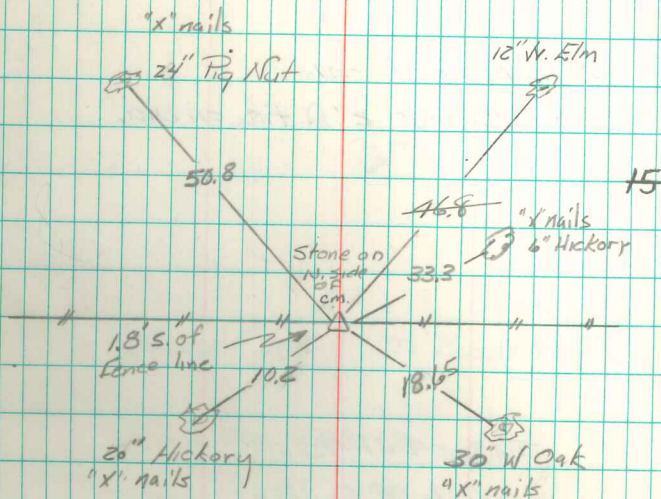 "X" nails
24" Pig Nut
12" W. Elm
50.8
46.8
15
"X" nails
6" Hickory
33.3
Stone on
N. side
of
cm.
1.8' S. of
Fence line
10.2
18.65
20" Hickory
"X" nails
30" W Oak
"X" nails